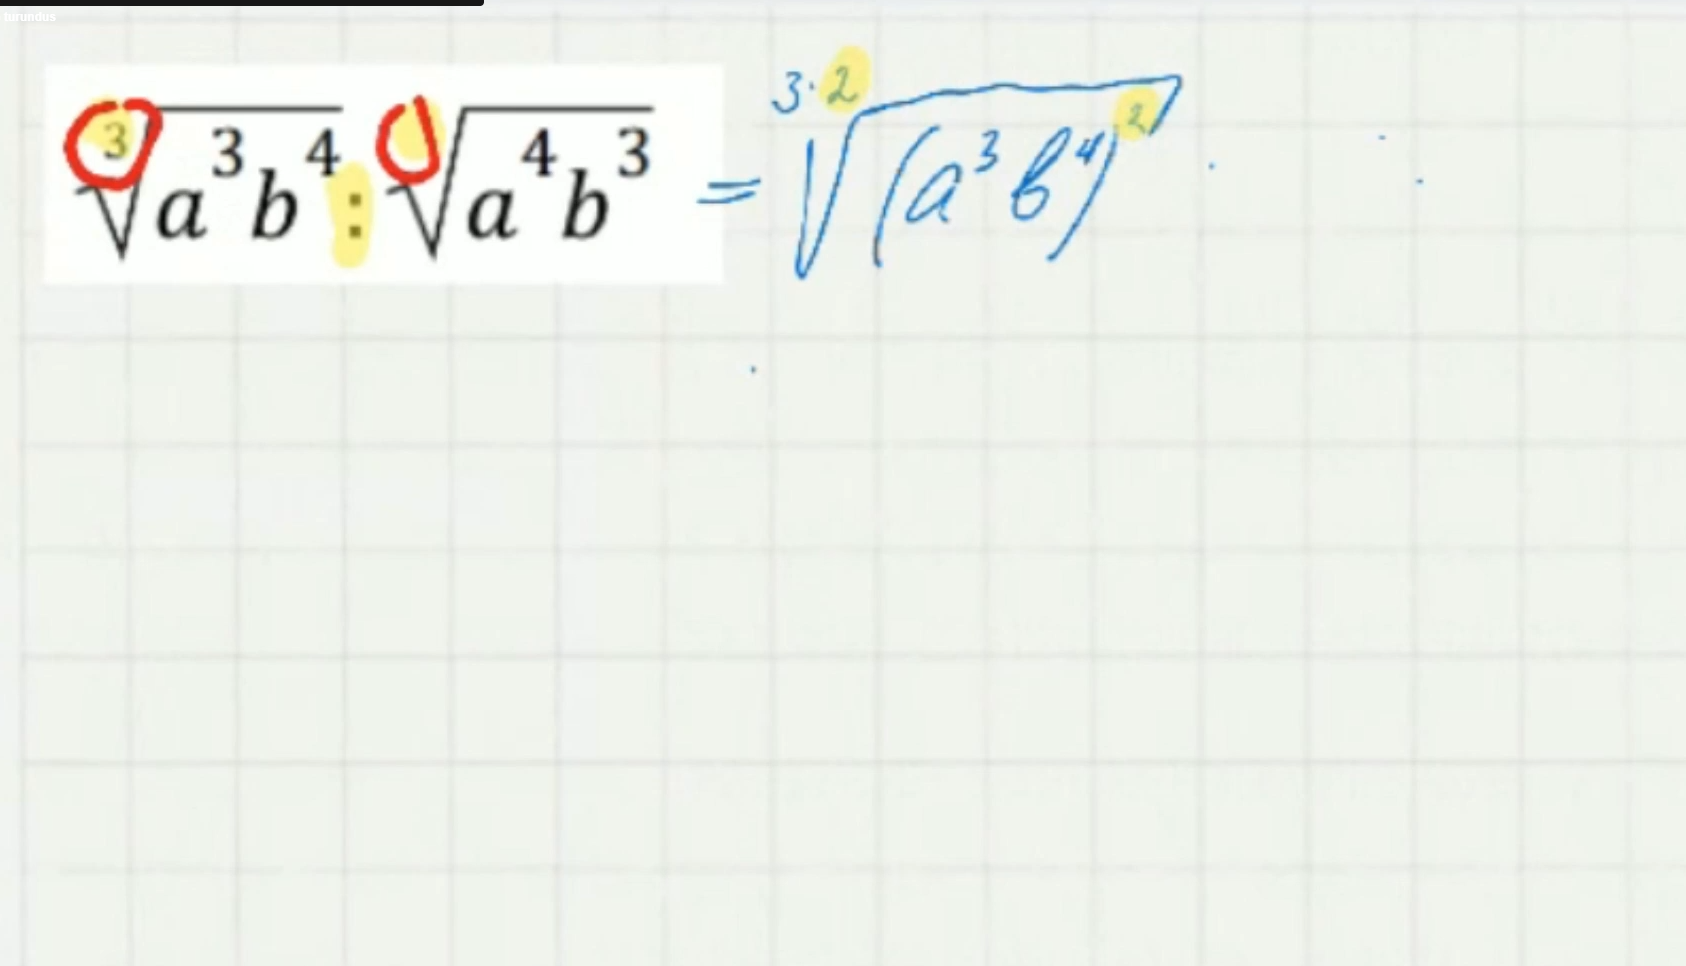 turundus
∛(a³b⁴) : √(a⁴b³) = ³·²√((a³b⁴)²)